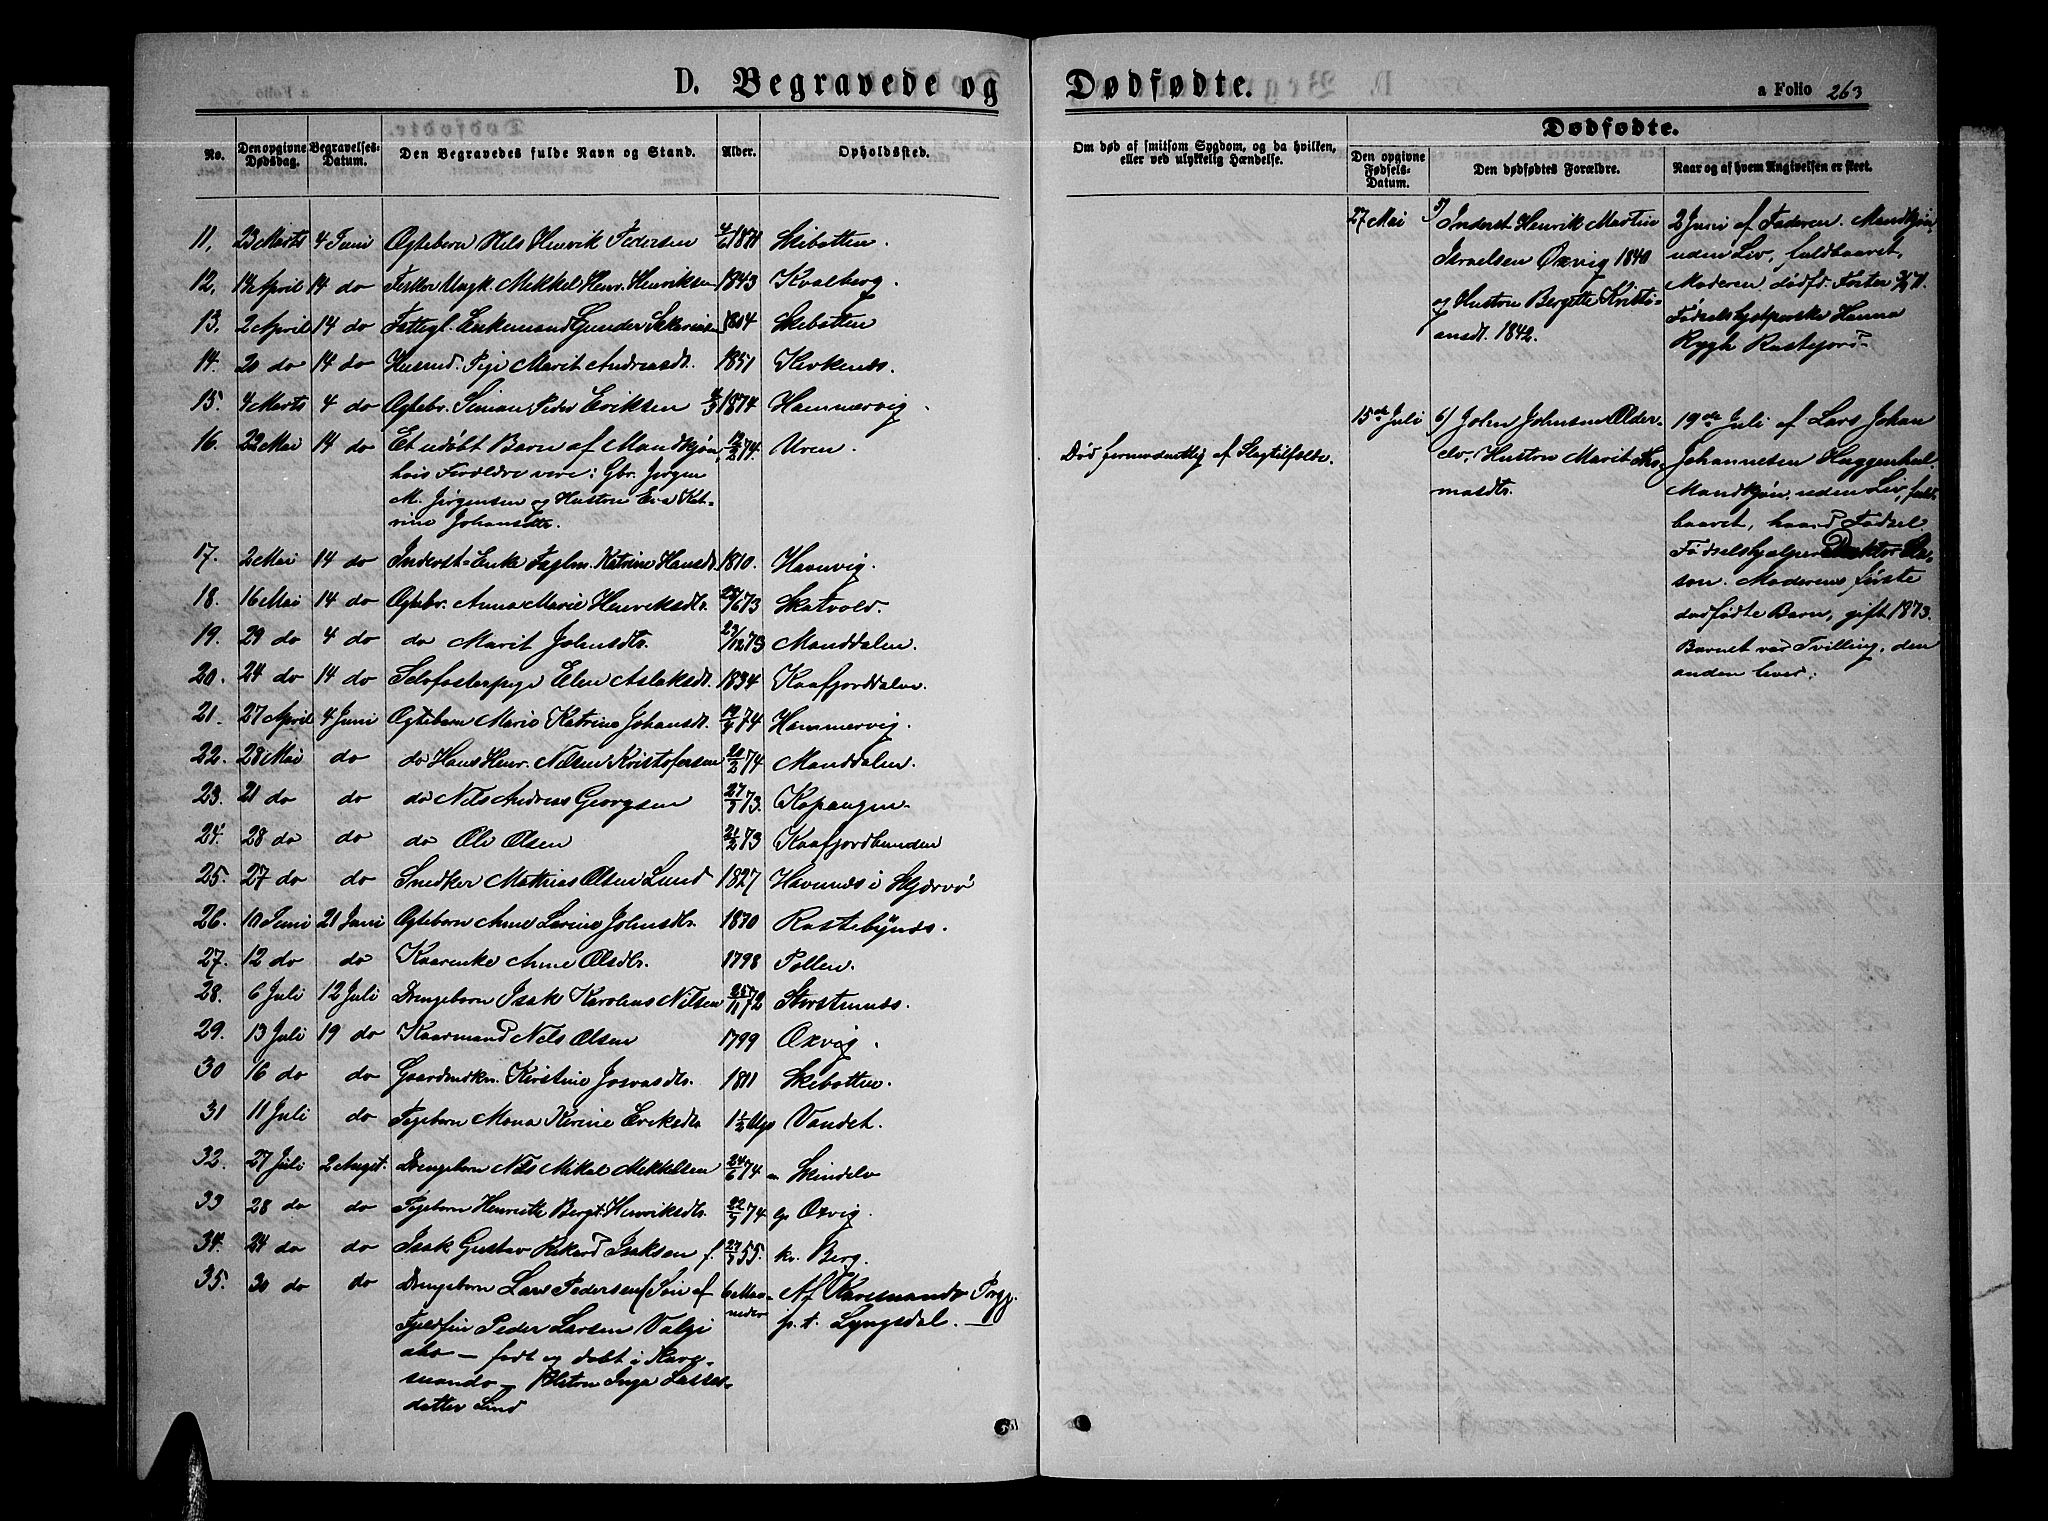 D. Begravede og
Dødfødte.
a Folio 263
No.
Den opgivne Dødsdag.
Begravelses-Datum.
Den Begravedes fulde Navn og Stand.
Alder.
Opholdssted.
Om død af smitsom Sygdom, og da hvilken,
eller ved ulykkelig Hændelse.
Dødfødte.
Den opgivne Fødsels-Datum.
Den dødfødtes Forældre.
Naar og af hvem Angivelsen er skeet.
11, 23 Marts 4 Juni Ægtebarn Nels Henrik Pedersen 4/6 1871 Skibotten.
12, 14 April 14 do Fisker Ungk Mikkel Henr. Henriksen 1843 Kvalberg.
13. 2 April 14 do Fattigl. Enkemand Gunder 1804 Skibotten
14. 20 do 14 do Husmd. Pige Marit Andreasdt. 1851 Kirkenes.
15. 4 Marts 4 do Ægtebr. Simon Peder Eriksen 2/3 1874 Hammervig.
16. 22 Mai 14 do Et udøbt Barn af Mandkjøn, 12/2 74. Uren.
hvis Forældre vare: Gbr. Jørgen
M. Jørgensen og Hustru Eva Kat-
rine Johansdtr.
Død formodentlig af Slagtilfælde.
17. 2 Mai 14 do Inderst-Enke Faglm. Katrine Hansdt. 1810. Havnvig.
18. 16 Mai 14 do Ægtebr. Anna Marie Henriksdtr. 23/6 73 Skatvold.
19. 29 do 4 do do Marit Johnsdtr. 23/12 73 Manddalen.
20. 24 do 14 do Selvfosterpige Elen Aslaksdt. 1834 Kaafjorddalen.
21. 27 April 4 Juni Ægtebarn Marie Katrine Johansdt. 19/4 74 Hammervig.
22. 28 Mai do do Hans Henr. Nilsen Kristofersen 20/2 74 Manddalen.
23. 21 do do do Nils Andreas Georgsen 27/7 73. Kopangen.
24. 28 do do do Ole Olsen 21/2 73 Kaafjordbunden
25. 27 do do Snedker Mathias Olsen Lund 1827 Havnnes i Skjærvø
26. 10 Juni 21 Juni Ægtebarn Ane Lorine Johnsdtr. 1870 Rastebynes.
27. 12 do do Kaarenke Anne Olsdtr. 1798 Pollen.
28. 6 Juli 12 Juli Drengebarn Isak Karolius Nilsen 25/11 72 Storstennes.
29. 13 Juli 19 do Kaarmand Nels Olsen 1799 Oxvig.
30 16 do do Gaardmdkn. Kirstine Josvasdtr. 1811 Skibotten.
31 11 Juli do Pigebarn Mona Kirine Eriksdtr 1½ Uge Vandet.
32. 27 Juli 2 August. Drengebarn Nils Mikal Mekkelsen 24/6 74 Skindelv
33 28 do do Pigebarn Henriette Bergt. Henriksdtr. 22/7 74 Oxvig.
34. 24 do do Isak Gustav Rikard Isaksen f. 27/7 55. kv. Berg.
35. 30 do do Drengebarn Lars Pedersen (Søn af 6 Maa- Af Karesuando Prgj.
Fjeldfin Peder Larsen Valgi neder p. t. Lyngsdal.
aho — født og døbt i Kare-
suando — Hstru Inga Lasses-
datter Lind
27 Mai
5/ Inderst Henrik Martin
Israelsen Oxvig 1840
og Hustru Bergitte Kristi-
ansdt. 1842.
2 Juni af Faderen. Mandkjøn,
uden Liv, fuldbaaret,
Moderen dødfd. Foster 71.
Fødselshjelperske Hanna
Rygh Rastefjord
15de Juli
6/ John Johnsen Older-
elv, Hustru Marit Tho-
masdtr.
19de Juli af Lars Johan
Johannesen Huggenhul.
Mandkjøn, uden Liv, fuld-
baaret, haard Fødsel.
Fødselshjelper Doktor
son. Moderens første
dødfødte Barn, gift 1873.
Barnet var Tvilling, den
anden lever.